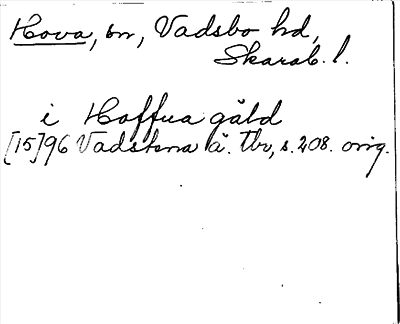 Hova, sn, Vadsbo hd,
Skarab. l.
i Hoffua gäld
[15]96 Vadstena ä. tb, s. 208. orig.